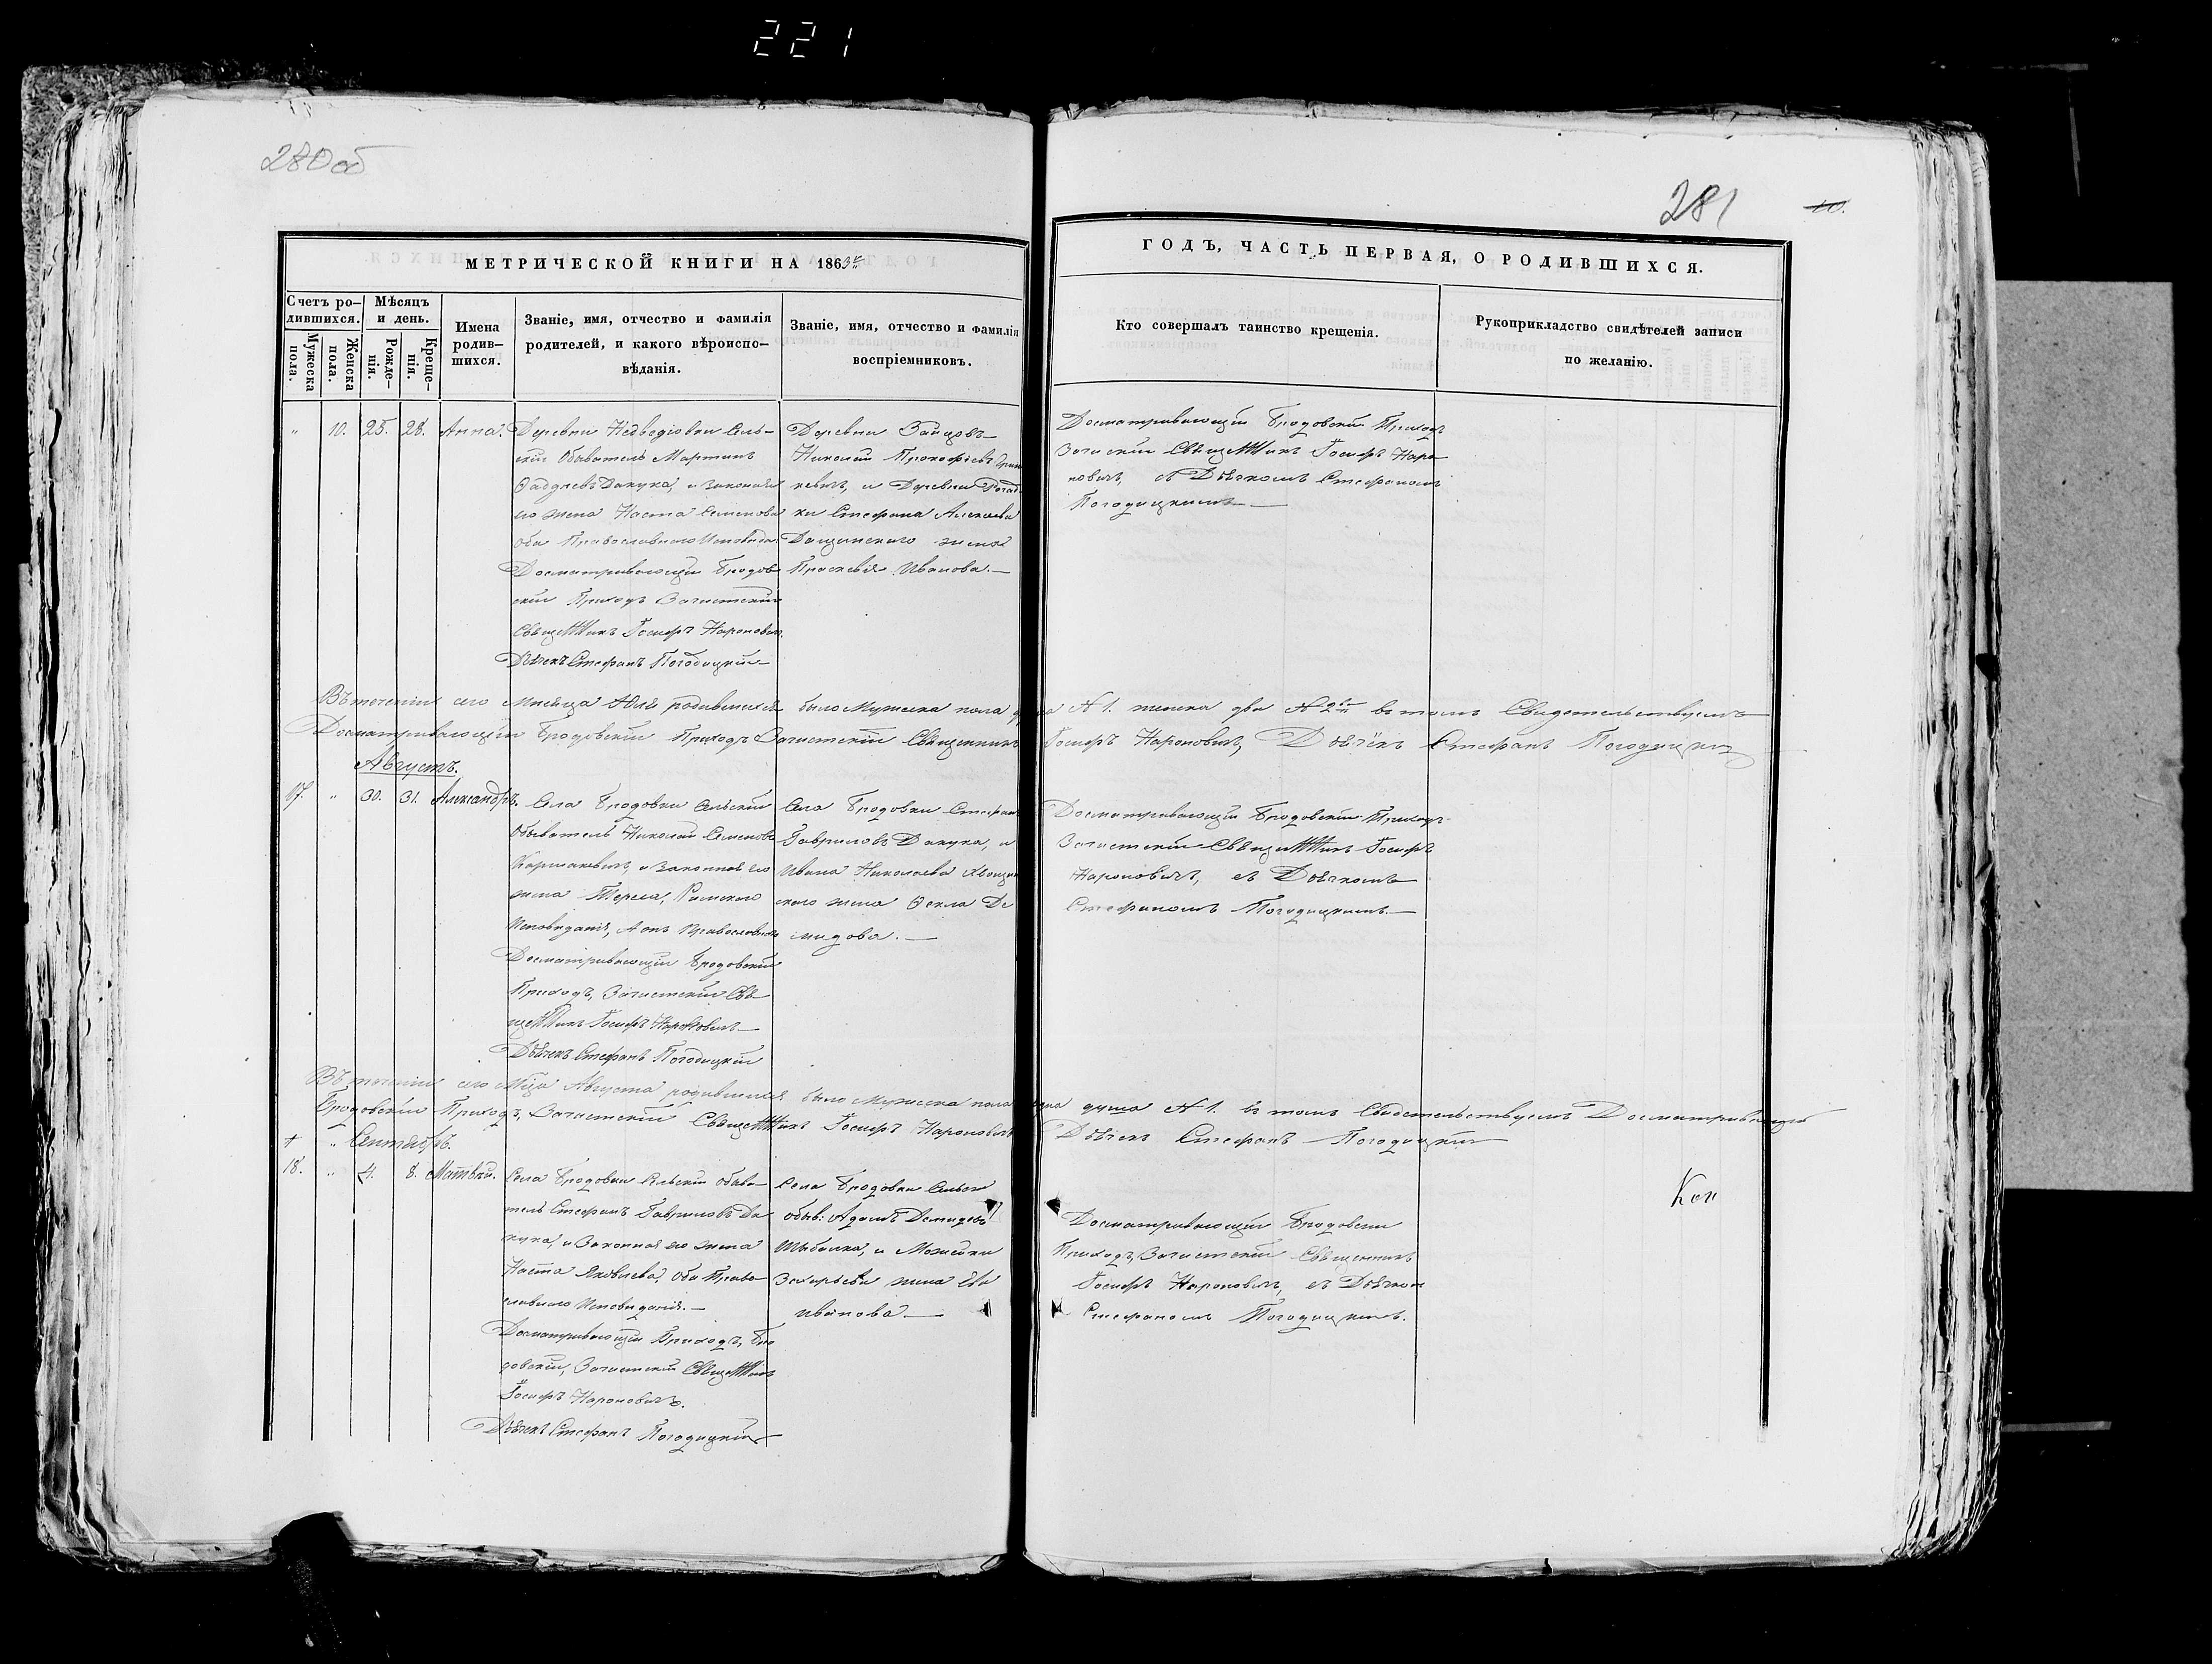 221
280 об
281
10.
МЕТРИЧЕСКОЙ КНИГИ НА 1863й
ГОДЪ, ЧАСТЬ ПЕРВАЯ, О РОДИВШИХСЯ.
Счетъ ро-
дившихся.
Мужеска
пола.
Женска
пола.
Мѣсяцъ
и день.
Рожде-
нія.
Креще-
нія.
Имена
родив-
шихся.
Званіе, имя, отчество и фамилія
родителей, и какого вѣроиспо-
вѣданія.
Званіе, имя, отчество и фамилія
воспріемниковъ.
Кто совершалъ таинство крещенія.
Рукоприкладство свидѣтелей записи
по желанію.
" 10. 25. 28. Анна.
Деревни Недведзовки Сель-
скій Обыватель Мартинъ
Фадѣевъ Дакука, и Законная
его жена Наста Семенова
оба Православного Исповѣда
Досматривающій Бродов
скій Приходъ Загистскій
СвѣщеННикъ Іосифъ Нароновичъ.
Дьячекъ Стефанъ Погодицкій
Деревни
Николай Прокофіевъ
и Деревни
Стефана Алексѣева
жена
Праскевія Иванова.—
Досматривающій Бродовскій Приходъ
СвѣщеННикъ Іосифъ Наро
новичъ, съ Дьячкомъ Стефаномъ
Погодицкимъ—
Въ теченіи сего Мѣсяца Юля родившихся было Мужеска пола душа N 1. женска два N 2й въ томъ Свидетельствуемъ
Досматривающій Бродовскій Приходъ Загистскій Свѣщенникъ Іосифъ Нароновичъ, Дьячекъ Стефанъ Погодицкій
Августъ.
17. " 30. 31. Александръ.
Села Бродовки Сельскій
Обыватель Николай Семеновъ
и Законная его
жена Тереса, Римского
Исповѣданія, А онъ Православнаго
Досматривающій Бродовскій
Приходъ, Загистскій Свѣ
щеННикъ Іосифъ Нароновичъ—
Дьячекъ Стефанъ Погодицкій
Села Бродовки Стефанъ
Гавриловъ Дакука, и
Ивана Николаева
ского жена Фекла Де
мидова.—
Досматривающій Бродовскій Приходъ
Загистскій СвѣщеННикъ Іосифъ
Нароновичъ, съ Дьячкомъ
Стефаномъ Погодицкимъ.—
Въ теченіи сего Мѣца Августа родившихся было Мужеска пола одна душа N 1. въ томъ Свидетельствуемъ Досматривающій
Бродовскій Приходъ, Загистскій СвѣщеННикъ Іосифъ Нароновичъ Дьячекъ Стефанъ Погодицкій
" Сентябръ.
18. " 4. 8. Матвѣй.
Села Бродовки Сельскій обыва-
тель Стефанъ Гавриловъ Да
кука, и Законная его жена
Наста Яковлева, Оба Право
славного Исповѣданія.—
Досматривающій Приходъ, Бро
довскій, Загистскій СвѣщеННикъ
Іосифъ Нароновичъ.
Дьячекъ Стефанъ Погодицкій
Села Бродовки Сельск
обыв: Адамъ Демидовъ
Шыбалка, и
Захарьева жена Ева
Иванова—
Досматривающій Бродовски
Приходъ, Загистскій Свѣщенникъ
Іосифъ Нароновичъ, съ Дьячком
Стефаномъ Погодицкимъ.
Коп